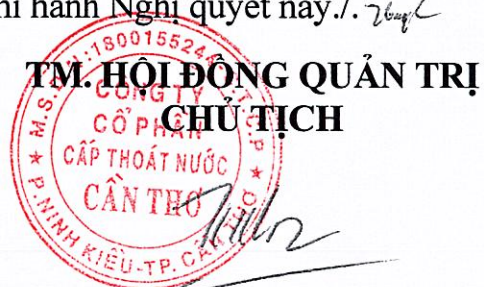 hi hành Nghị quyết này./.
TM. HỘI ĐỒNG QUẢN TRỊ
CHỦ TỊCH
M.S.D.N:18001552
C.T.C.P
CÔNG TY
CỔ PHẦN
CẤP THOÁT NƯỚC
CẦN THƠ
P.NINH KIỀU-TP.CẦN THƠ